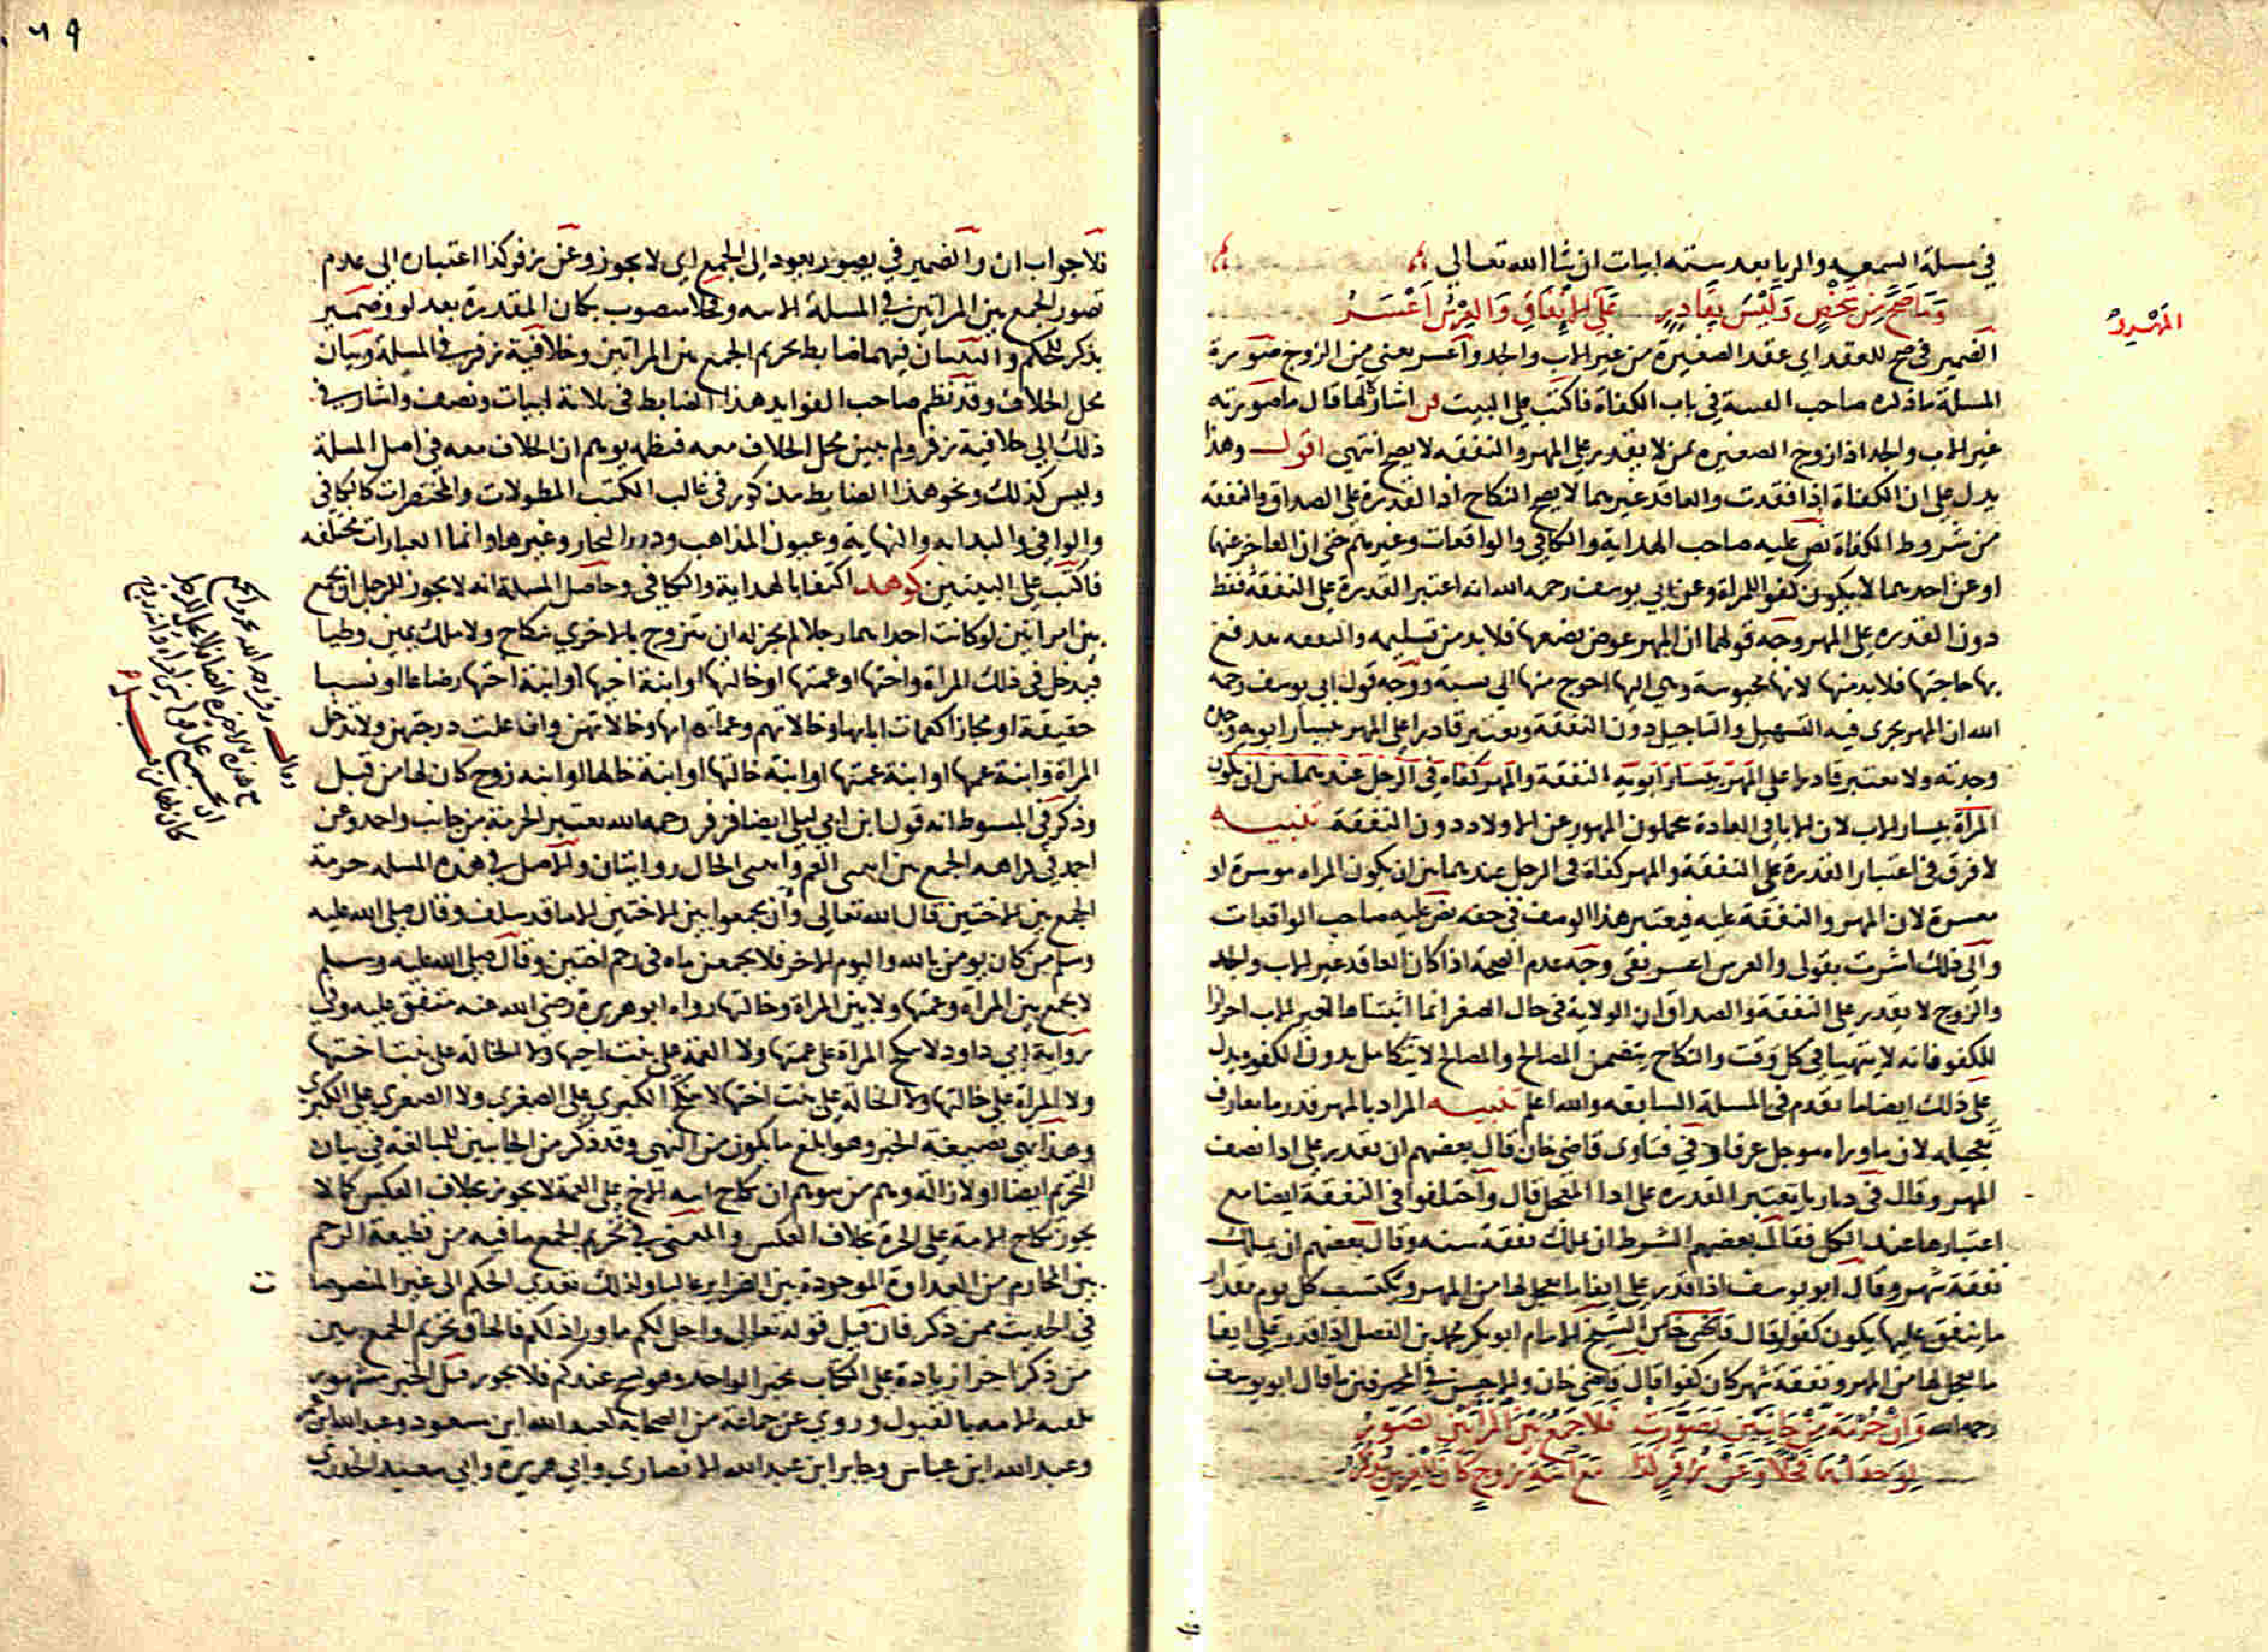 في مسلة السمعه والريا بعد ستة ابيات ان شا الله تعالي
وَمَا صَحَّ مِنْ شَخْصٍ وَلَيْسَ بِقَادِرٍ عَلَي الْإِنْفَاقِ وَالْعِرْسُ أَعْسَرُ
المَهْرِ
الضمير في صح للعقد اي عقد الصغيرة من غير الاب والجد وأعسر يعني من الزوج صورة
المسلة ما ذكره صاحب القنية في باب الكفاة فاكتب علي البيت اشارة لها قال ما صورته
غير الاب والجد اذا زوج الصغيره ممن لا يقدر علي المهر والنفقه لا يصح انتهى اقول وهذا
يدل علي ان الكفاة اذا فقدت والعاقد غيرهما لا يصح النكاح اذ القدرة علي الصداق والنفقه
من شروط الكفاة نص عليه صاحب الهداية والكافي والواقعات وغيرهم حتى ان العاجز عنهما
او عن احدهما لا يكون كفوا للمراة وعن ابي يوسف رحمه الله انه اعتبر القدرة علي النفقة فقط
دون القدره علي المهر وجه قولهما ان المهر عوض بضعها فلا بد من تسليمه والنفقه تندفع
بها حاجتها فلا بد منها لانها محبوسة وهي اليها احوج منها الي نسبه ووجه قول ابي يوسف رحمه
الله ان المهر يجرى فيه التسهيل والتاجيل دون النفقة ويعتبر قادرا علي المهر بيسار ابويه وجده
وجدته ولا يعتبر قادرا علي المهر بيسار ابويه النفقة والمهر كفاه في الرجل عندهما بين ان يكون
المرآة بيسار الاب لان الابا في العادة يحملون المهور عن الاولاد دون النفقة تنبيه
لا فرق في اعتبار القدرة علي النفقة والمهر كفاة في الرجل عندهما بين ان يكون المراه موسرة او
معسرة لان المهر والنفقة عليه فيعتبر هذا الوصف في حقه نص عليه صاحب الواقعات
والي ذلك اشرت بقولي والعرس اعسر بقي وجه عدم الصحة اذا كان العاقد غير الاب والجد
والزوج لا يقدر على النفقة والصداق ان الولاية في حال الصغر انما اثبتناها لغير الاب احرازا
للكفو فانه لا يتهيا في كل وقت والنكاح يتضمن المصالح والمصالح لا تتكامل بدون الكفو ويدل
علي ذلك ايضا ما تقدم في المسلة السابقه والله اعلم تنبيه المراد بالمهر قدر ما تعارف
تعجيله لان ما وراه موجل عرفا وفي فتاوى قاضي خان قال بعضهم ان يقدر علي ادا نصف
المهر وقال في ديارنا يعتبر القدره على ادا المتعجل قال واختلفوا في النفقة ايضا مع
اعتبارها عند الكل فقال بعضهم الشرط ان يملك نفقة سنه وقال بعضهم ان يملك
نفقة شهر وقال ابو يوسف اذا قدر على ايفا ما عجل لها من المهر ويكتسب كل يوم مقدار
ما ينفق عليها يكون كفوا وقال قاضي خان الشيخ الامام ابو بكر محمد بن الفضل اذا قدر علي ايفا
ما تعجل لها من المهر ونفقة شهر كان كفوا قال قاضي خان والاحسن في المحترفين ما قال ابو يوسف
رحمه الله وَاِنْ حُرْمَة مِنْ جَانِبَيْنِ تَصَوَّرَتْ فَلَا جَمْعَ بَيْنَ الْمَرْأَتَيْنِ تَصَوَّرُ
مَعَ ابْنَةِ زَوْجٍ كَانَ
٦٩
فلا جواب ان والضمير في يعود الى الجمع اي لا يجوز وعن زفر كذا اعتباره الى عدم
تصور الجمع بين المراتين في المسلة الاتيه وفحلا منصوب بكان المقدرة بعد لو وضمير
يذكر للحكم والبيتان فيهما ضابط تحريم الجمع بين المراتين وخلافية زفر في المسلة وبيان
محل الخلاف وقد نظم صاحب الفوايد هذا الضابط في ثلاثة ابيات ونصف واشار في
ذلك الي خلافية زفر ولم يبين محل الخلاف معه فنظمه يوهم ان الخلاف معه في اصل المسلة
وليس كذلك ونحو هذا الضابط مذكور في غالب الكتب المطولات والمختصرات كالكافي
والوافي والبدايه والنهاية وعيون المذاهب ودرر البحار وغيرها وانما العبارات مختلفه
فاكتب علي البيتين اكتفا بالهداية والكافي وحاصل المسلة انه لا يجوز للرجل ان يجمع
بين امراتين لو كانت احداهما رجلا لم يجز له ان يتزوج بالاخري بنكاح ولا ملك يمين وطيا
فيدخل في ذلك المراة واختها او عمتها او خالتها او ابنة اخيها او ابنة اختها رضاعا او نسبا
حقيقة او مجازا كعمات ابايها وخالاتهم وعمات امهاتها وخالاتهن وان علت درجتهن ولا تدخل
المراة وابنة عمها او ابنة عمتها او ابنة خالتها او ابنة خالها او ابنه زوج كان لها من قبل
وذكر في المبسوط انه قول ابن ابي ليلي ايضا فزفر رحمه الله يعتبر الحرمة من جانب واحد وعن
احمد في كراهه الجمع بين ابنتى العم وابنتى الخال روايتان والاصل في هذه المسله حرمة
الجمع بين الاختين قال الله تعالى وان تجمعوا بين الاختين الا ما قد سلف وقال صلى الله عليه
وسلم من كان يومن بالله واليوم الاخر فلا يجمعن ماه في رحم اختين وقال صلى الله عليه وسلم
لا يجمع بين المرأة وعمتها ولا بين المراة وخالتها رواه ابو هريرة رضي الله عنه متفق عليه وفي
رواية ابي داود لا تنكح المراة علي عمتها ولا العمة على بنت اخيها ولا الخالة على بنت اختها
ولا المراة علي خالتها ولا الخالة علي بنت اختها لا تنكح الكبرى على الصغرى ولا الصغري على الكبري
وهذا نهي بصيغة الخبر وهو ابلغ ما يكون من النهي وقد ذكر من الجانبين للمبالغة في بيان
التحريم ايضا او لازالة وهم من يتوهم ان نكاح ابنه الاخ على العمة لا يجوز بخلاف العكس كما لا
يجوز نكاح الامة على الحرة بخلاف العكس والمعنى في تحريم الجمع ما فيه من قطيعة الرحم
بين المحارم من العداوة الموجودة بين الضراير غالبا ولذلك تعدي الحكم الى غير المنصوصا
ت
في الحديث ممن ذكر فان قيل قوله تعالى واحل لكم ما وراذلكم فالحاق تحريم الجمع بين
من ذكر اخيرا زيادة على الكتاب بخبر الواحد وهو نسخ عندكم فلا يجوز قيل الخبر مشهور
تلقته الامة بالقبول وروي عن جماعة من الصحابة كعبد الله ابن مسعود وعبد الله ابن عمر
وعبد الله ابن عباس وجابر ابن عبد الله الانصاري وابي هريرة وابي سعيد الخدري
وقال زفر رحمه الله